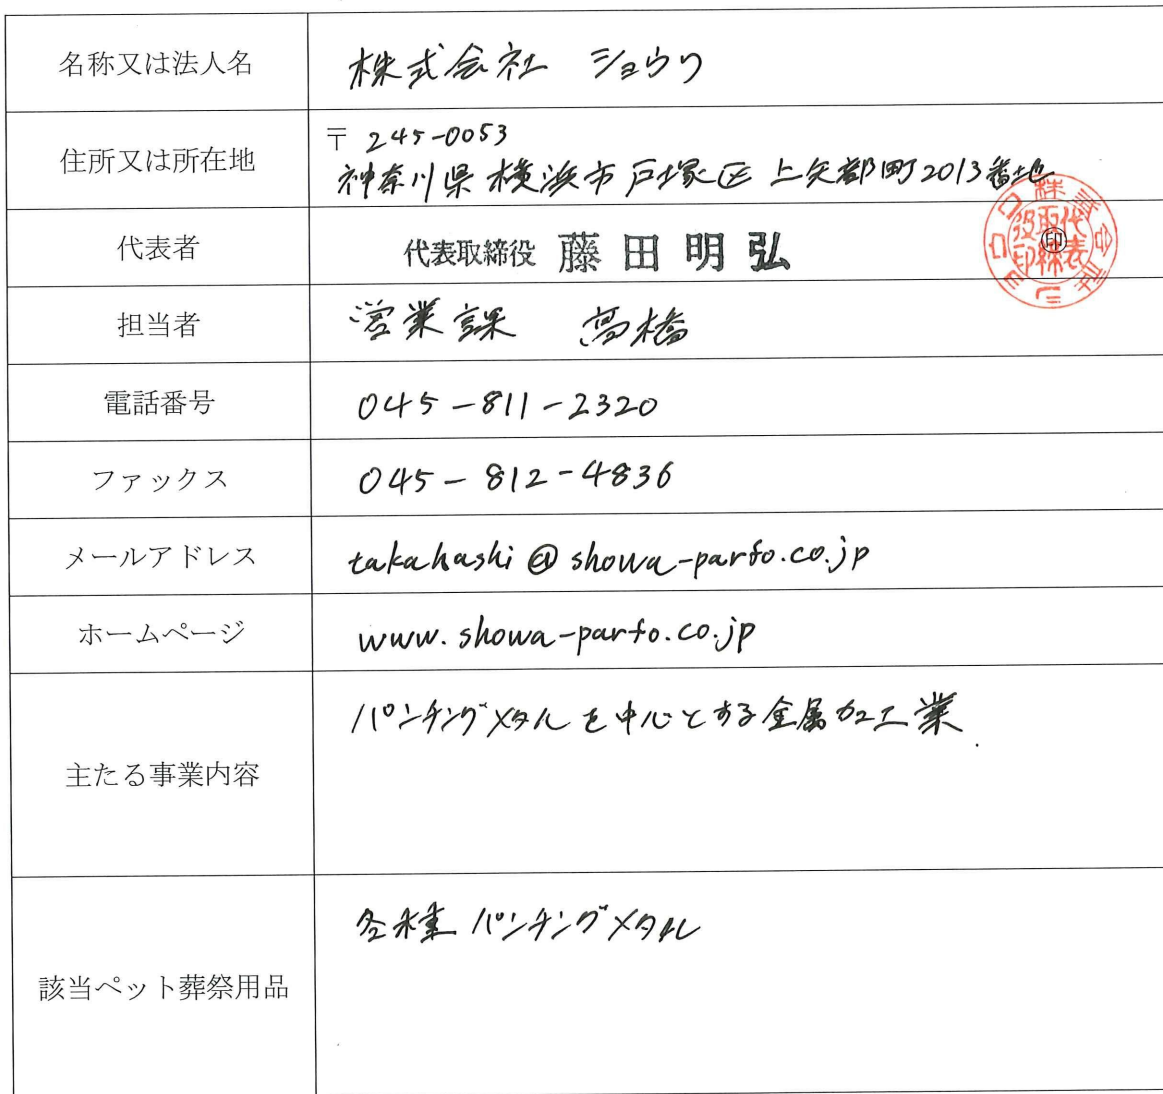 名称又は法人名 株式会社 ショウワ
〒 245-0053
住所又は所在地 神奈川県横浜市戸塚区上矢部町2013番地
代表者 代表取締役 藤田明弘 ㊞
担当者 営業課 高橋
電話番号 045-811-2320
ファックス 045-812-4836
メールアドレス takahashi@showa-parfo.co.jp
ホームページ www.showa-parfo.co.jp
主たる事業内容 パンチングメタルを中心とする金属加工業.
該当ペット葬祭用品 各種パンチングメタル